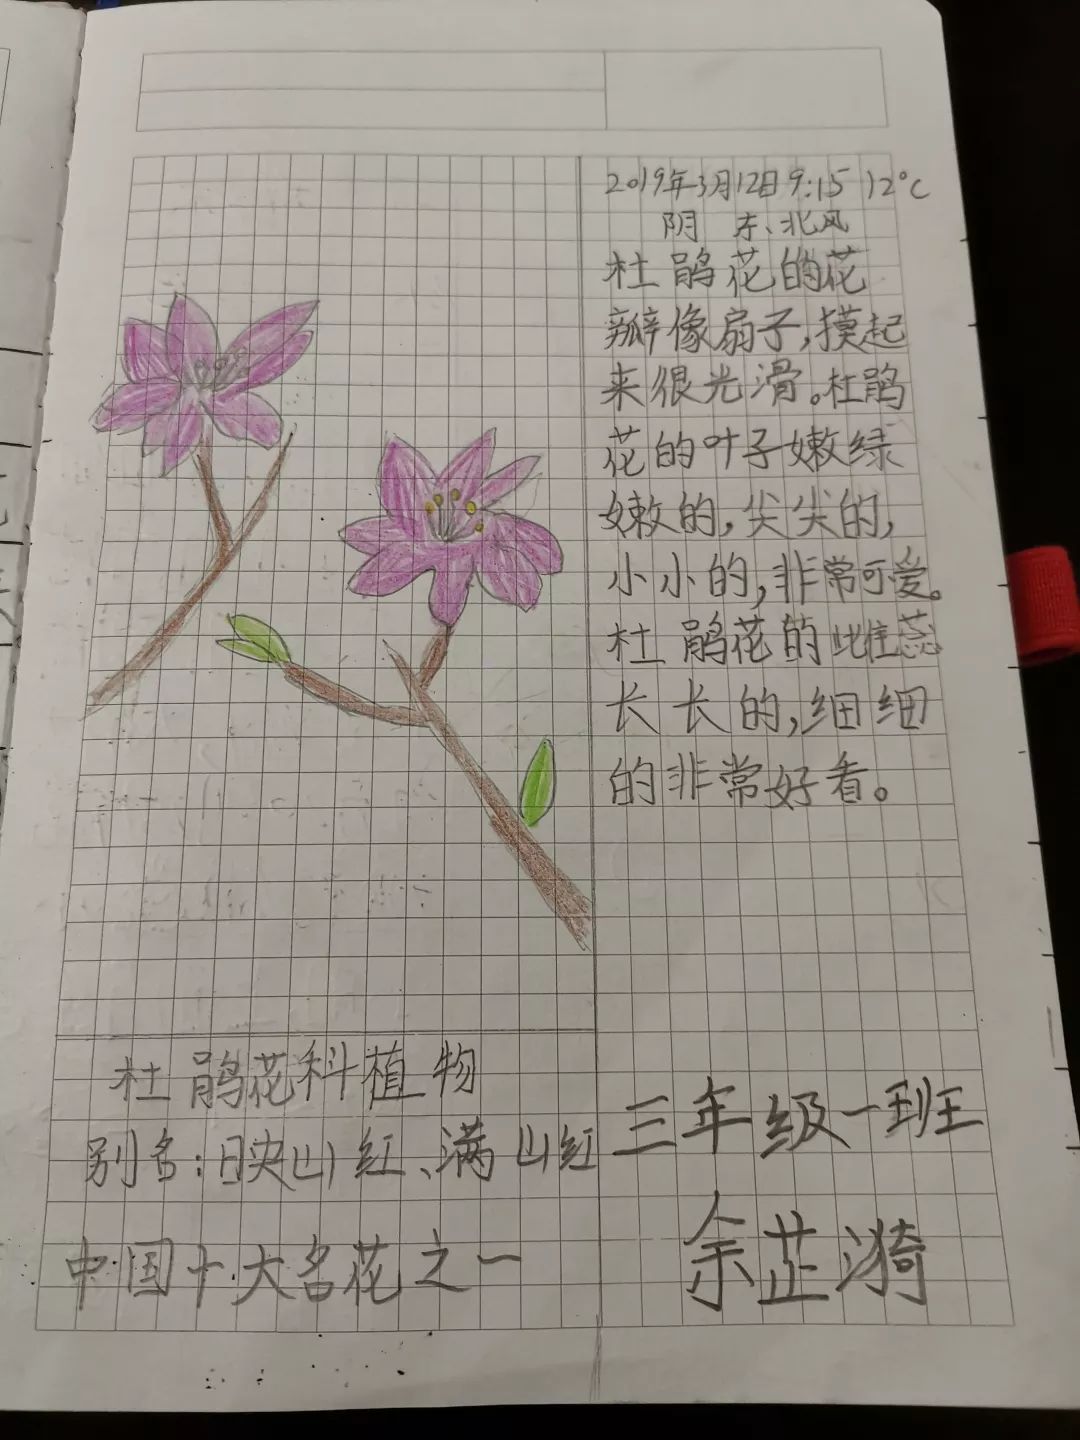 2019年3月12日 9:15 12°C
阴 东、北风
杜鹃花的花
瓣像扇子,摸起
来很光滑。杜鹃
花的叶子嫩绿
嫩的,尖尖的,
小小的,非常可爱。
杜鹃花的雌蕊
长长的,细细
的非常好看。
杜鹃花科植物
别名:映山红、满山红
中国十大名花之一
三年级一班
余芷漪